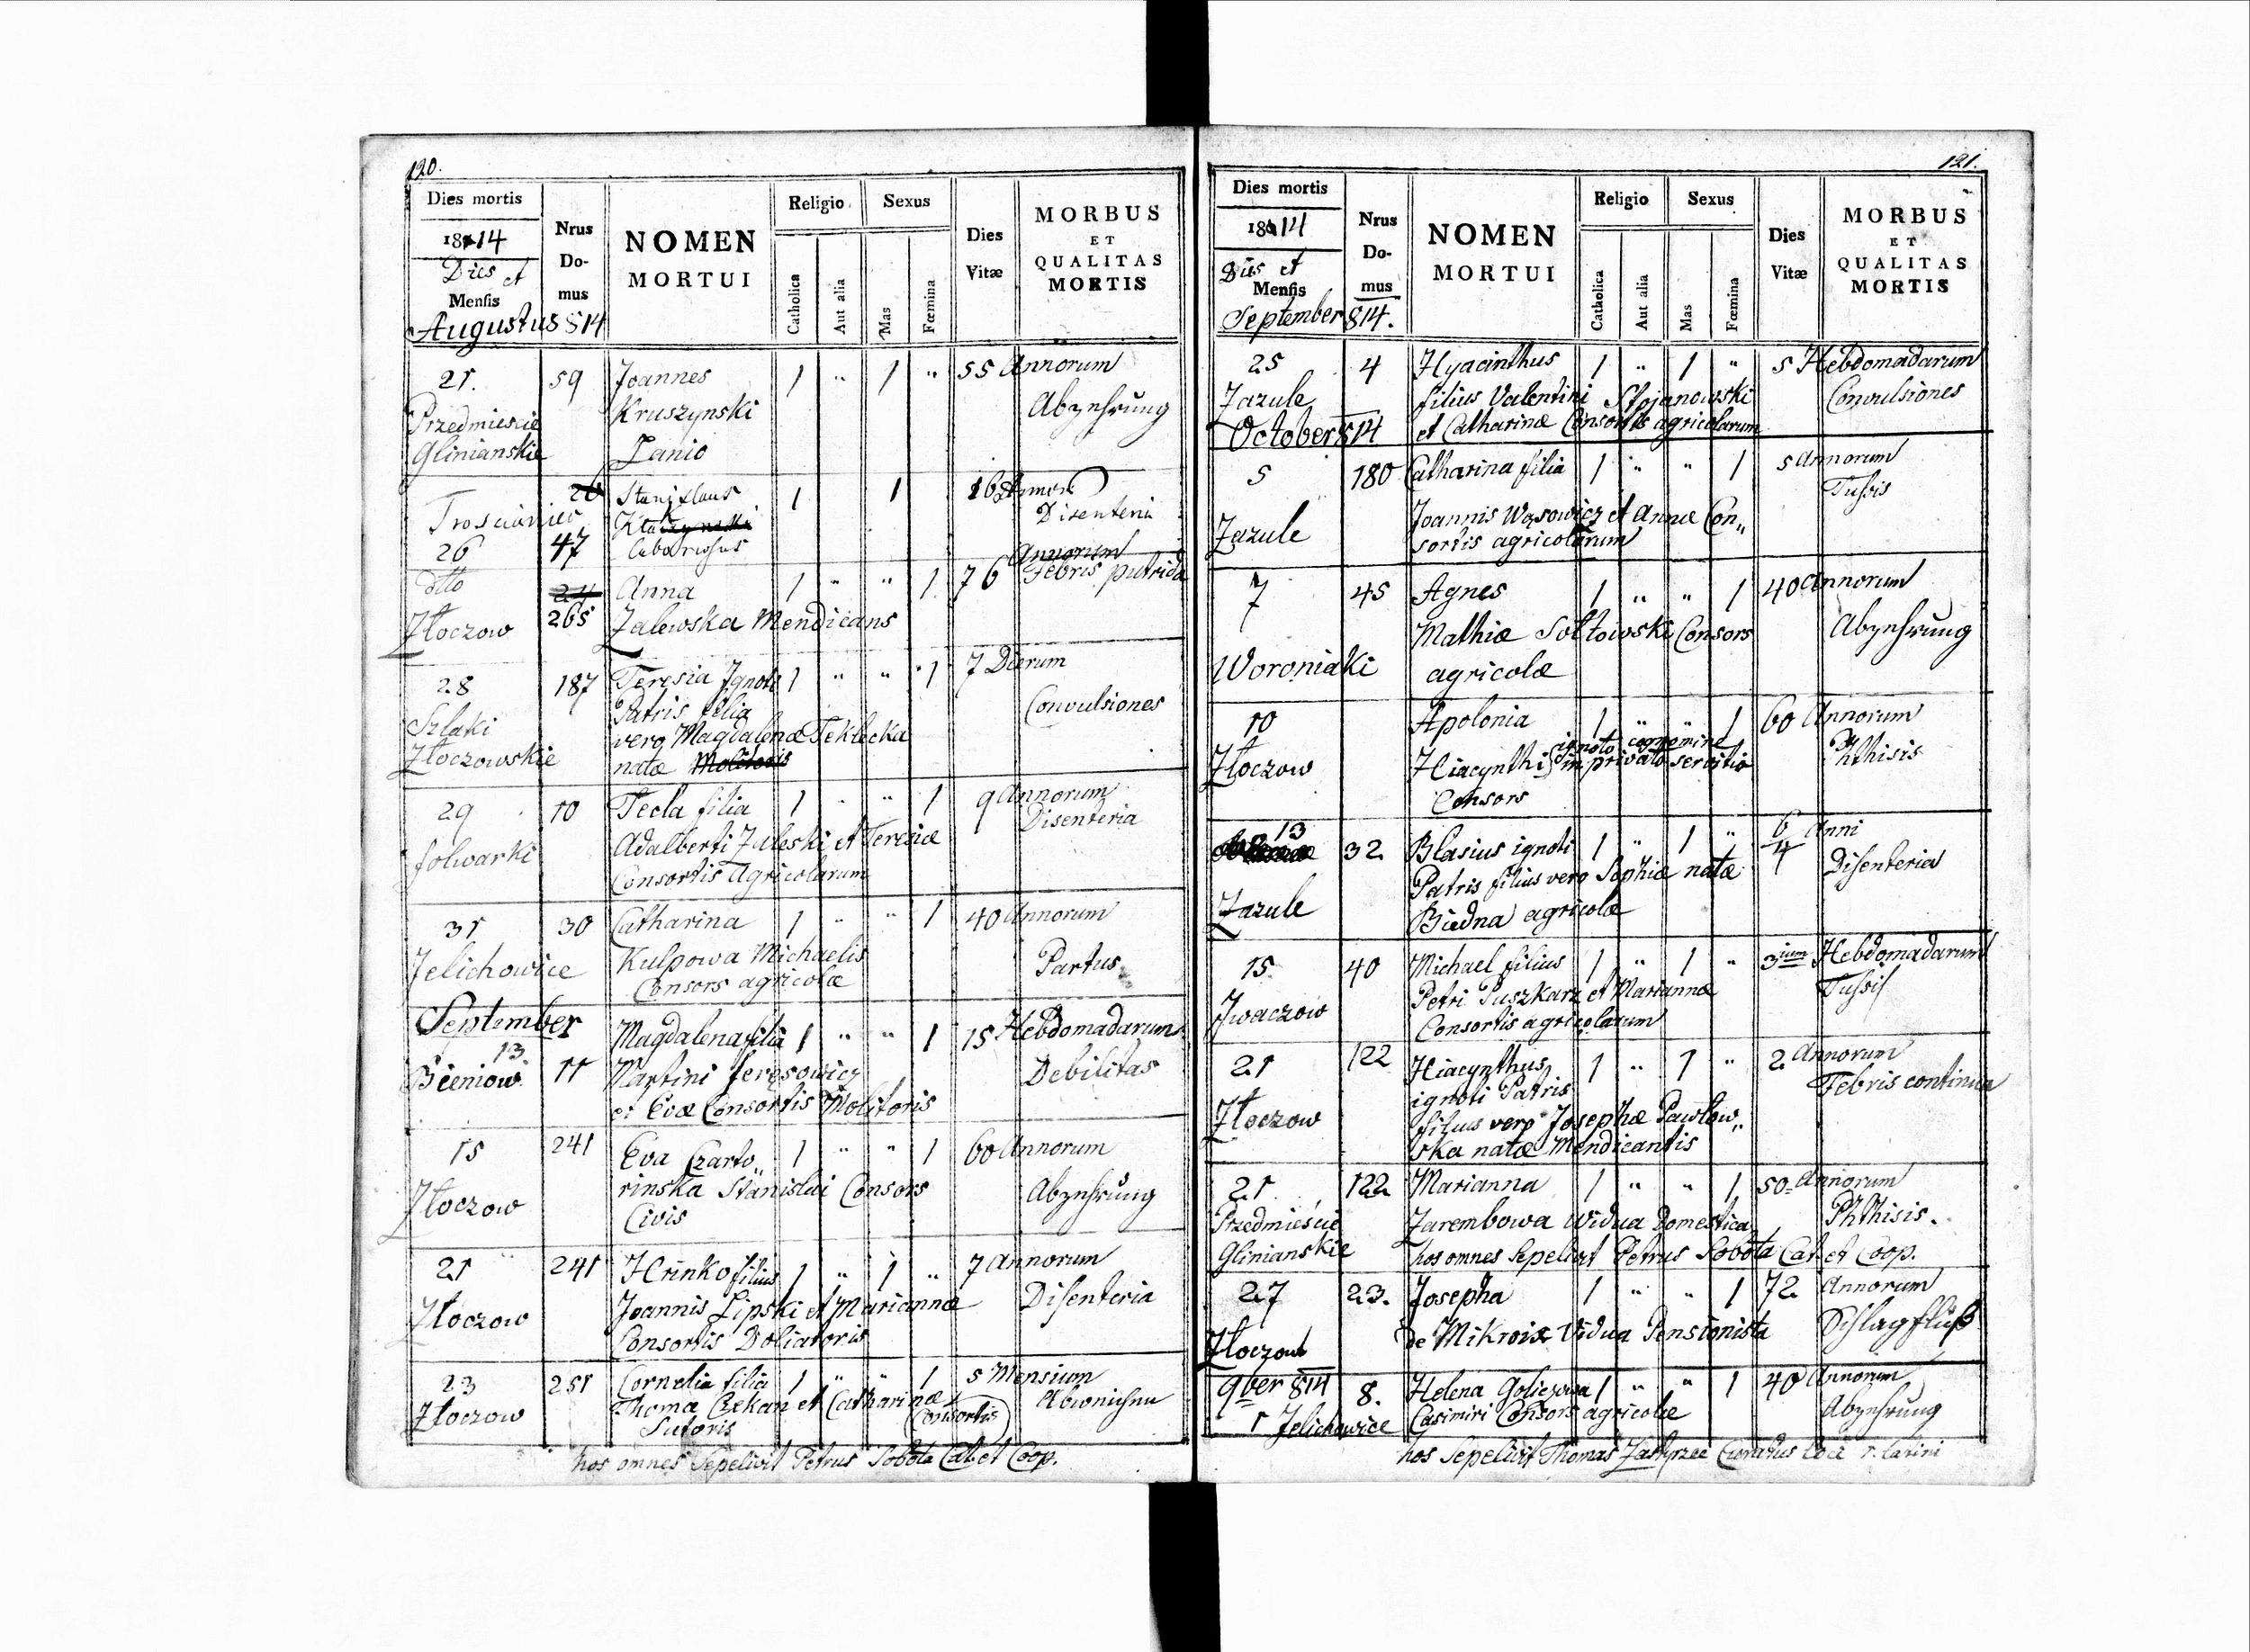 120.
Dies mortis
1814
Dies et
Mensis
Augustus 814
Nrus
Do-
mus
NOMEN
MORTUI
Religio
Catholica
Aut alia
Sexus
Mas
Fœmina
Dies
Vitæ
MORBUS
ET
QUALITAS
MORTIS
21. 59 Joannes 1 " 1 " 55 Annorum
Przedmiescie Kruszynski Abzehrung
Glinianskie Lanio
Stanislaus 1 1 16 Annor
Trosciániec Disenteria
26 47 laboriosus
Annorum
dtto Anna 1 " " 1 76 Febris putrida
Złoczow 265 Zalewska Mendicans
28 187 Teresia Ignoti 1 " " 1 7 Dierum
Patris filia Convulsiones
Szlaki vero Magdalenæ Teklecka
Złoczowskie natæ Molitoris
29 10 Tecla filia 1 " " 1 9 Annorum
Disenteria
folwarki Adalberti Zaleski et Teresiæ
Consortis Agricolarum
31 30 Catharina 1 " " 1 40 Annorum
Jelichowice Kulpowa Michaelis Partus
Consors agricolæ
September
13. Magdalena filia 1 " " 1 15 Hebdomadarum
Bieniow 11 Martini feresowicz Debilitas
et Evæ Consortis Molitoris
15 241 Eva Czarto„ 1 " " 1 60 Annorum
Złoczow rinska Stanislai Consors Abzehrung
Civis
21 241 Hrinko filius 1 " 1 " 7 Annorum
Złoczow Joannis Lipski et Mariannæ Disenteria
Consortis Doliatoris
23 251 Cornelia filia 1 " " 1 5 Mensium
Złoczow Thomæ Czekan et Catharinæ
Consortis
Sutoris
hos omnes Sepelivit Petrus Sobota Cat. et Coop.
121.
Dies mortis
1814
Dies et
Mensis
September 814.
Nrus
Do-
mus
NOMEN
MORTUI
Religio
Catholica
Aut alia
Sexus
Mas
Fœmina
Dies
Vitæ
MORBUS
ET
QUALITAS
MORTIS
25 4 Hyacinthus 1 " 1 " 5 Hebdomadarum
Zazule filius Valentini Stojanowski Convulsiones
October 814 et Catharinæ Consortis agricolarum
5 180 Catharina filia 1 " " 1 5 Annorum
Tussis
Joannis Wąsowicz et Annæ Con„
Zazule sortis agricolarum
7 45 Agnes 1 " " 1 40 Annorum
Mathiæ Sołtowski Consors Abzehrung
Woroniaki agricolæ
10 Apolonia 1 " " 1 60 Annorum
ignoto cognomine
Złoczow Hiacynthi in privato servitio Phthisis
Consors
13 32 Blasius ignoti 1 " 1 " 6/4 Anni
Patris filius vero Sophiæ natæ Disenteria
Zazule Biedna agricolæ
15 40 Michael filius 1 " 1 " 3ium Hebdomadarum
Petri Puszkarz et Mariannæ Tussis
Jwaczow Consortis agricolarum
21 122 Hiacynthus 1 " 1 " 2 Annorum
ignoti Patris Febris continua
Złoczow filius vero Josephæ Pawłow„
ska natæ Mendicantis
21 122 Marianna 1 " " 1 50 Annorum
Przedmieście Zarembowa Vidua Domestica Phthisis.
Glinianskie hos omnes Sepelivit Petrus Sobota Cat. et Coop.
27 23. Josepha 1 " " 1 72 Annorum
Złoczow de Mikroix Vidua Pensionista Schlagfluß
9ber 814 8. Helena Goliczowa 1 " " 1 40 Annorum
1 Jelichowice Casimiri Consors agricolæ Abzehrung
hos Sepelivit Thomas Curatus Loci r. Latini